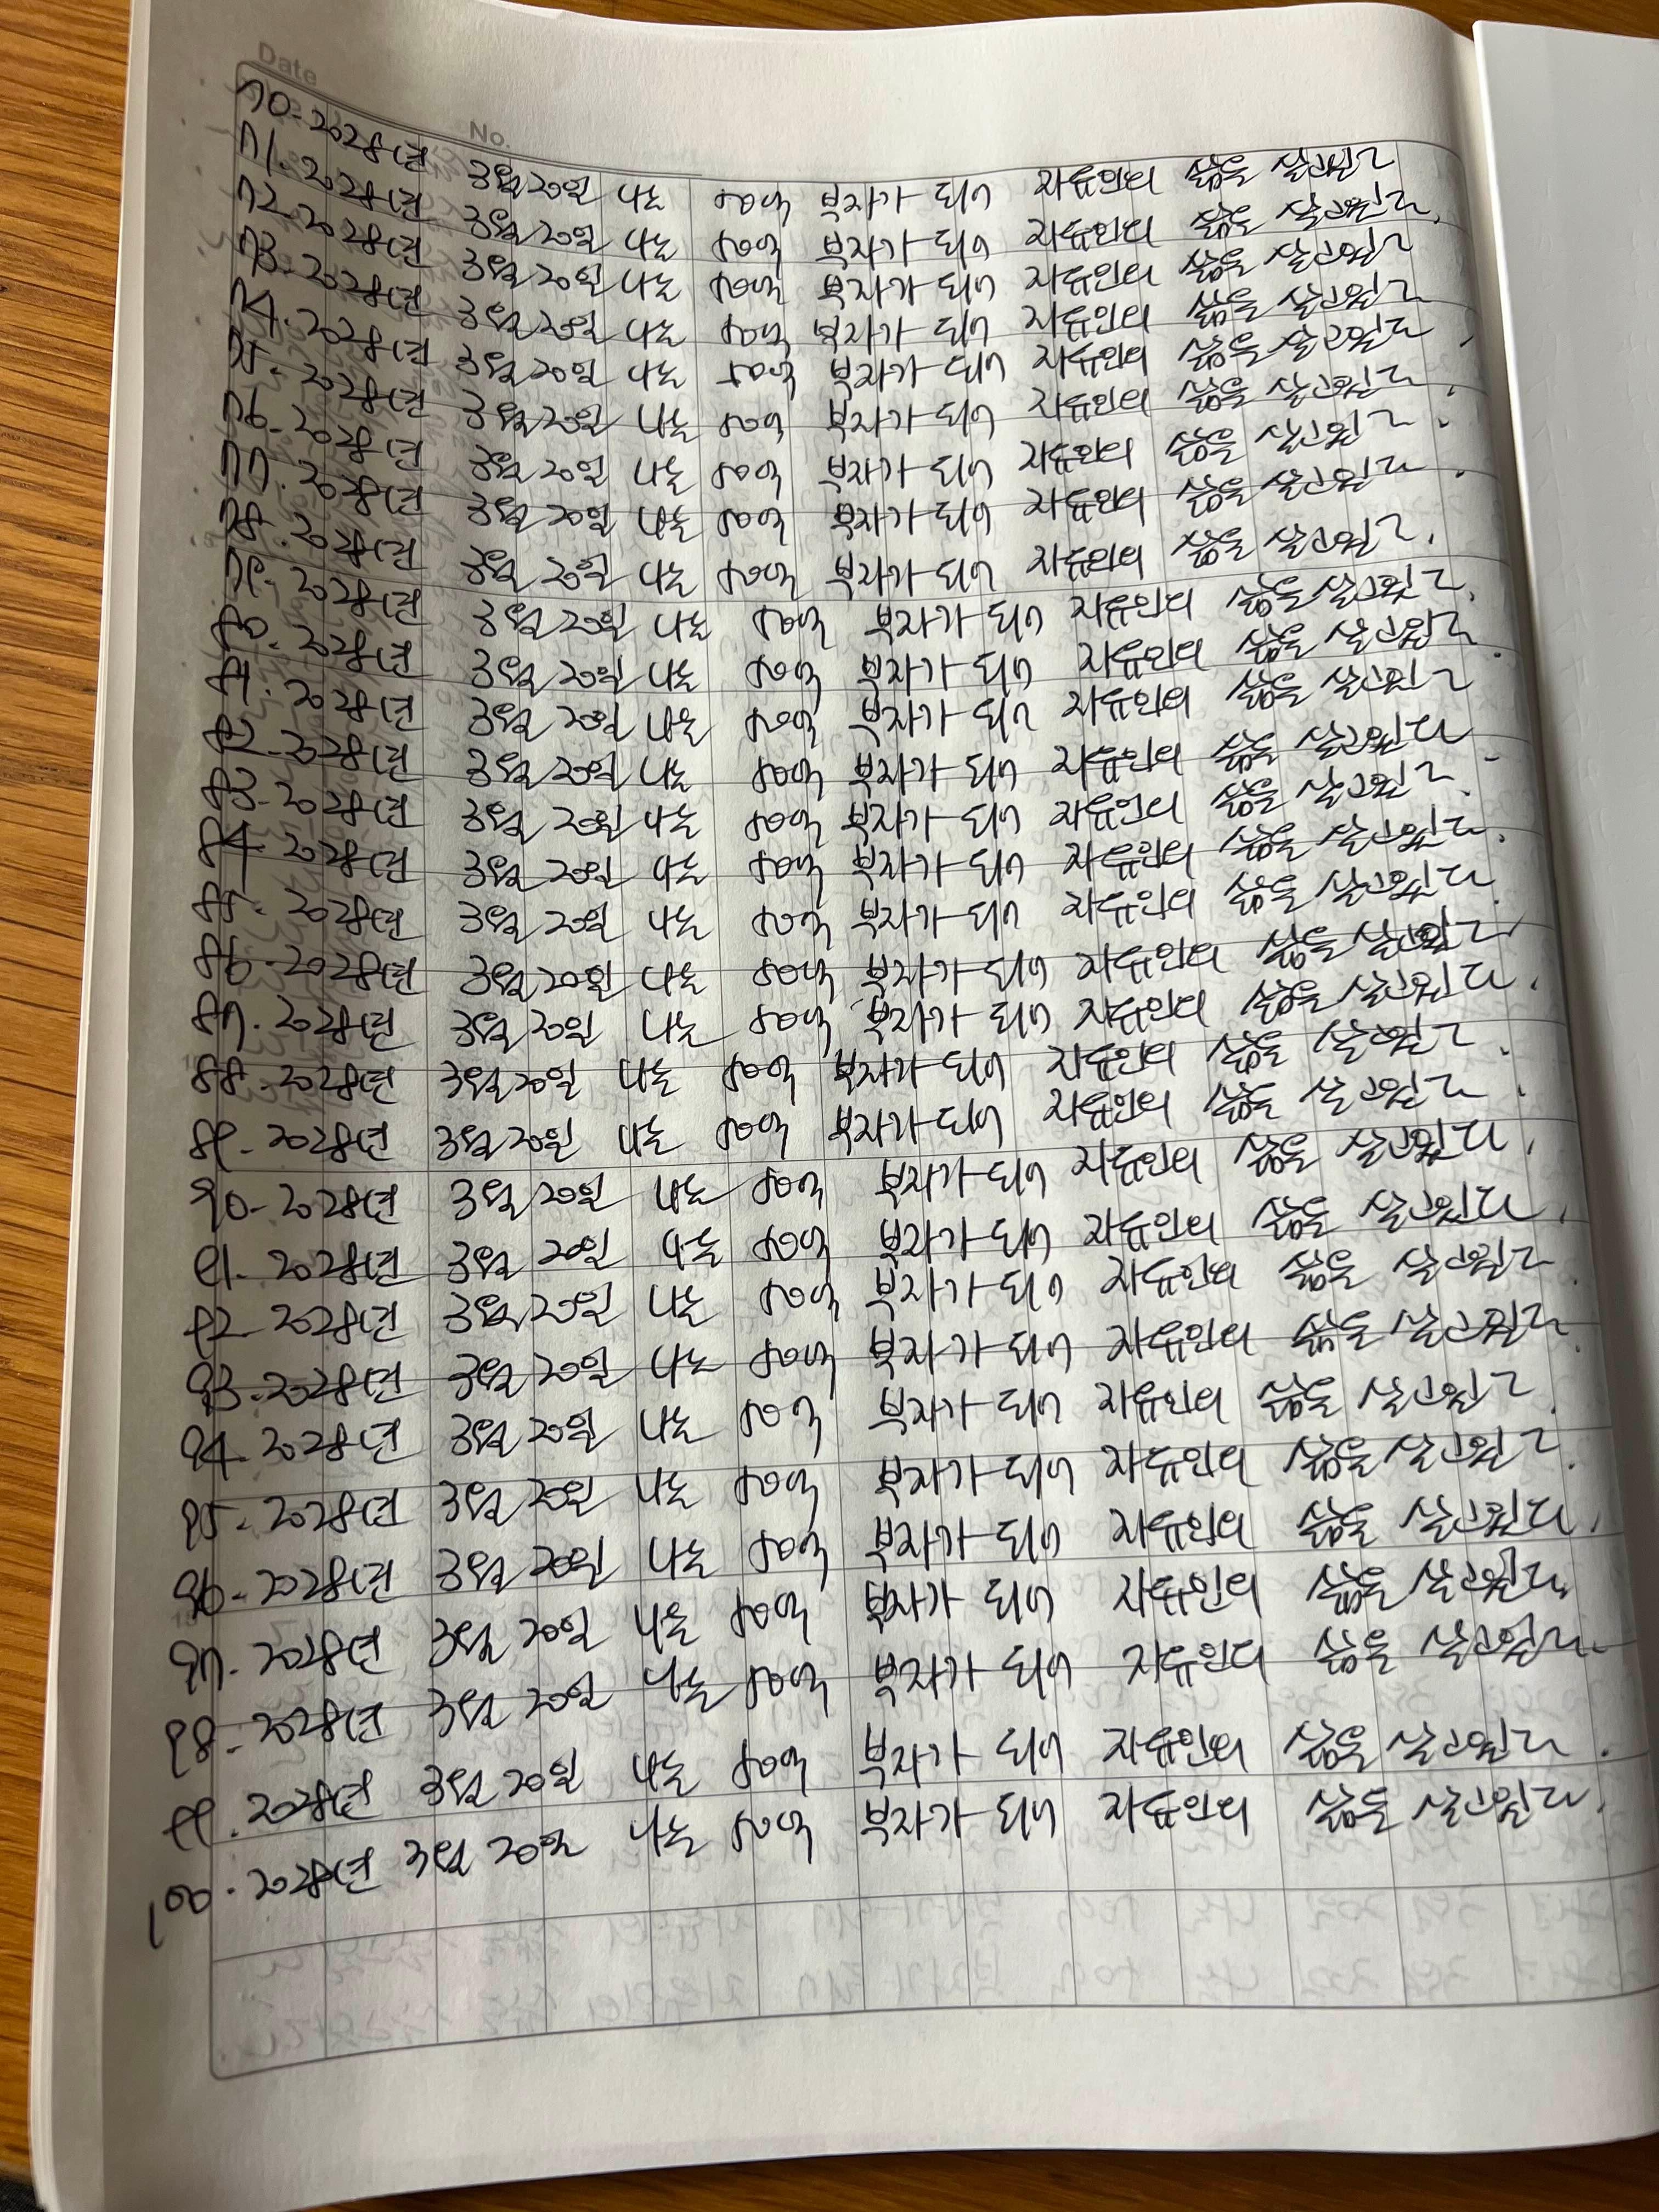 Date
No.
70. 2028년 3월 20일 나는 50억 부자가 되어 자유인의 삶을 살고있다
71. 2028년 3월 20일 나는 50억 부자가 되어 자유인의 삶을 살고있다.
72. 2028년 3월 20일 나는 50억 부자가 되어 자유인의 삶을 살고있다
73. 2028년 3월 20일 나는 50억 부자가 되어 자유인의 삶을 살고있다
74. 2028년 3월 20일 나는 50억 부자가 되어 자유인의 삶을 살고있다.
75. 2028년 3월 20일 나는 50억 부자가 되어 자유인의 삶을 살고있다.
76. 2028년 3월 20일 나는 50억 부자가 되어 자유인의 삶을 살고있다.
77. 2028년 3월 20일 나는 50억 부자가 되어 자유인의 삶을 살고있다.
78. 2028년 3월 20일 나는 50억 부자가 되어 자유인의 삶을 살고있다.
79. 2028년 3월 20일 나는 50억 부자가 되어 자유인의 삶을 살고있다.
80. 2028년 3월 20일 나는 50억 부자가 되어 자유인의 삶을 살고있다.
81. 2028년 3월 20일 나는 50억 부자가 되어 자유인의 삶을 살고있다
82. 2028년 3월 20일 나는 50억 부자가 되어 자유인의 삶을 살고있다.
83. 2028년 3월 20일 나는 50억 부자가 되어 자유인의 삶을 살고있다.
84. 2028년 3월 20일 나는 50억 부자가 되어 자유인의 삶을 살고있다.
85. 2028년 3월 20일 나는 50억 부자가 되어 자유인의 삶을 살고있다.
86. 2028년 3월 20일 나는 50억 부자가 되어 자유인의 삶을 살고있다
87. 2028년 3월 20일 나는 50억 부자가 되어 자유인의 삶을 살고있다.
88. 2028년 3월 20일 나는 50억 부자가 되어 자유인의 삶을 살고있다.
89. 2028년 3월 20일 나는 50억 부자가 되어 자유인의 삶을 살고있다.
90. 2028년 3월 20일 나는 50억 부자가 되어 자유인의 삶을 살고있다.
91. 2028년 3월 20일 나는 50억 부자가 되어 자유인의 삶을 살고있다.
92. 2028년 3월 20일 나는 50억 부자가 되어 자유인의 삶을 살고있다.
93. 2028년 3월 20일 나는 50억 부자가 되어 자유인의 삶을 살고있다.
94. 2028년 3월 20일 나는 50억 부자가 되어 자유인의 삶을 살고있다.
95. 2028년 3월 20일 나는 50억 부자가 되어 자유인의 삶을 살고있다.
96. 2028년 3월 20일 나는 50억 부자가 되어 자유인의 삶을 살고있다.
97. 2028년 3월 20일 나는 50억 부자가 되어 자유인의 삶을 살고있다.
98. 2028년 3월 20일 나는 50억 부자가 되어 자유인의 삶을 살고있다.
99. 2028년 3월 20일 나는 50억 부자가 되어 자유인의 삶을 살고있다.
100. 2028년 3월 20일 나는 50억 부자가 되어 자유인의 삶을 살고있다.